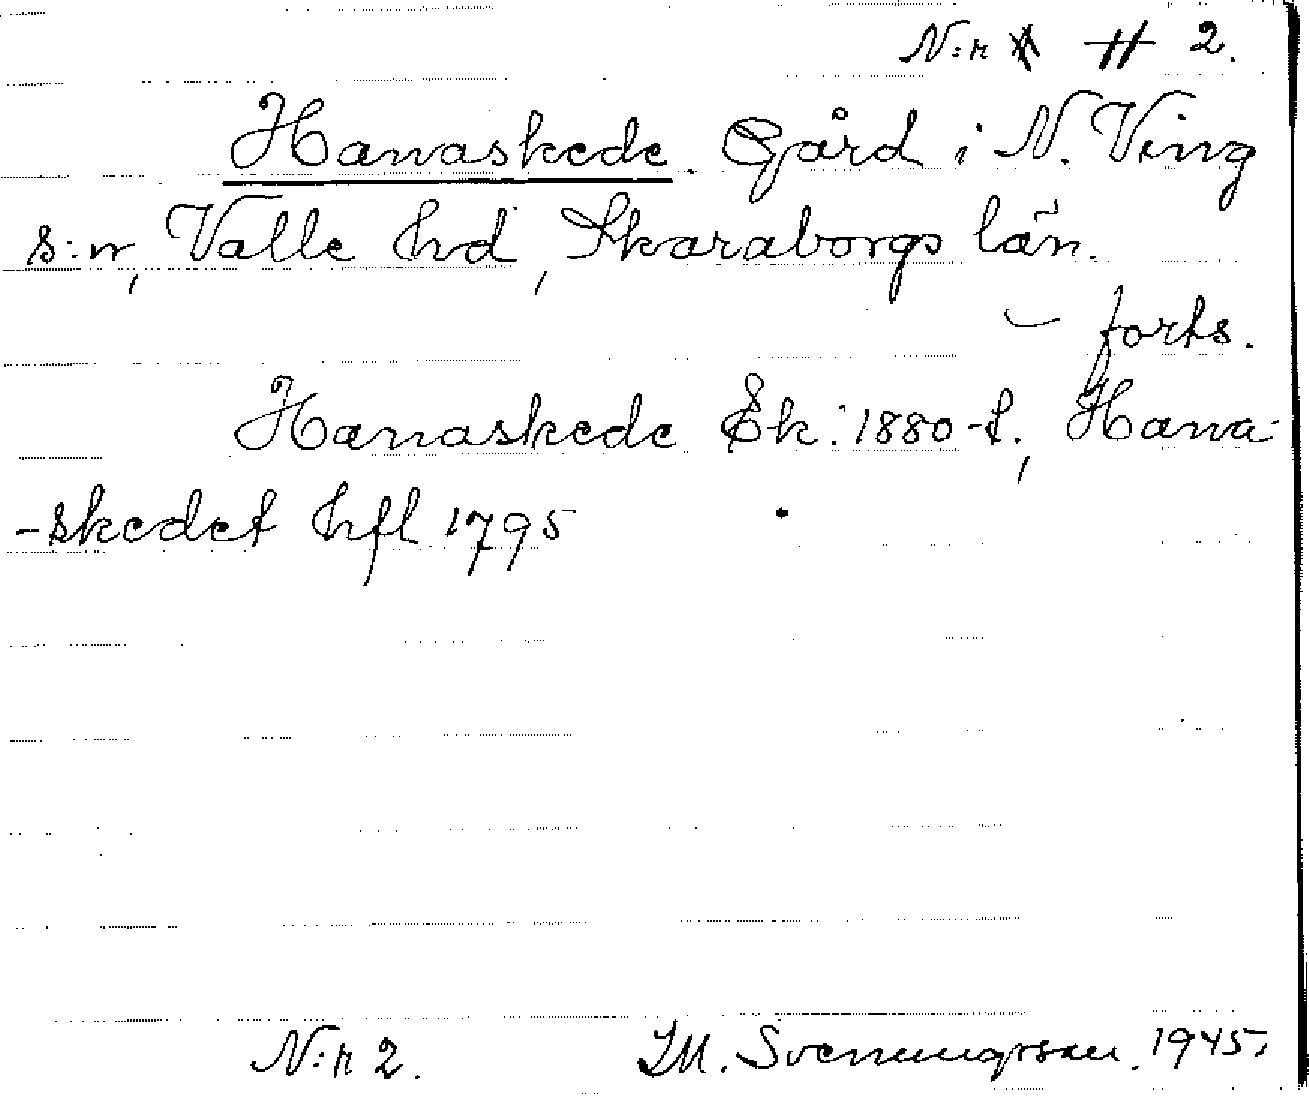 N:r 2.
Hanaskede. Gård i N. Ving
s:n, Valle hd, Skaraborgs län.
– forts.
Hanaskede Ek. 1880-t., Hana-
-skedet hfl 1795
N:r 2. I.M. Svenungsson. 1945.